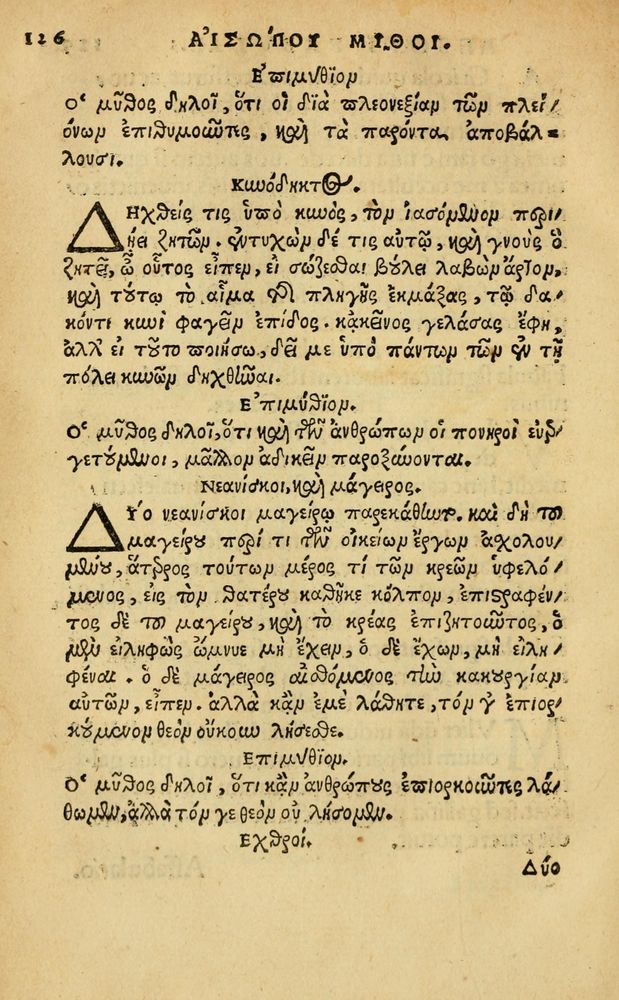 126 ΑἸΣΏΠΟΥ ΜΥ͂ΘΟΙ.
Ἐπιμύθιον
Ὁ μῦθος δηλοῖ, ὅτι οἱ διὰ πλεονεξίαν τῶν πλει/
όνων ἐπιθυμοῦντες, καὶ τὰ παρόντα ἀποβάλ=
λουσι.
Κυνόδηκτος.
Δηχθείς τις ὑπὸ κυνὸς, τὸν ἰασόμενον περιῄ/
ει ζητῶν. ἐντυχὼν δέ τις αὐτῷ, καὶ γνοὺς ὃ
ζητεῖ, ὦ οὗτος εἶπεν, εἰ σώζεσθαι βούλει λαβὼν ἄρτον,
καὶ τούτῳ τὸ αἷμα τῆς πληγῆς ἐκμάξας, τῷ δα/
κόντι κυνὶ φαγεῖν ἐπίδος. κἀκεῖνος γελάσας ἔφη,
ἀλλ' εἰ τοῦτο ποιήσω, δεῖ με ὑπὸ πάντων τῶν ἐν τῇ
πόλει κυνῶν δηχθῆναι.
Ἐπιμύθιον.
Ὁ μῦθος δηλοῖ, ὅτι καὶ τῶν ἀνθρώπων οἱ πονηροὶ εὐερ/
γετούμενοι, μᾶλλον ἀδικεῖν παροξύνονται.
Νεανίσκοι, καὶ μάγειρος.
Δύο νεανίσκοι μαγείρῳ παρεκάθηντο. καὶ δὴ τοῦ
μαγείρου περί τι τῶν οἰκείων ἔργων ἀσχολου/
μένου, ἅτερος τούτων μέρος τί τῶν κρεῶν ὑφελό/
μενος, εἰς τὸν θατέρου καθῆκε κόλπον, ἐπιστραφέν/
τος δὲ τοῦ μαγείρου, καὶ τὸ κρέας ἐπιζητοῦντος, ὁ
μὲν εἰληφὼς ὤμνυε μὴ ἔχειν, ὁ δὲ ἔχων, μὴ εἰλη/
φέναι. ὁ δὲ μάγειρος αἰσθόμενος τὴν κακουργίαν
αὐτῶν, εἶπεν. ἀλλὰ κἂν ἐμὲ λάθητε, τόν γ' ἐπιορ/
κούμενον θεὸν οὔκουν λήσεσθε.
Ἐπιμύθιον.
Ὁ μῦθος δηλοῖ, ὅτι κἂν ἀνθρώπους ἐπιορκοῦντες λά/
θωμεν, ἀλλὰ τόν γε θεὸν οὐ λήσομεν.
Ἐχθροί.
Δύο